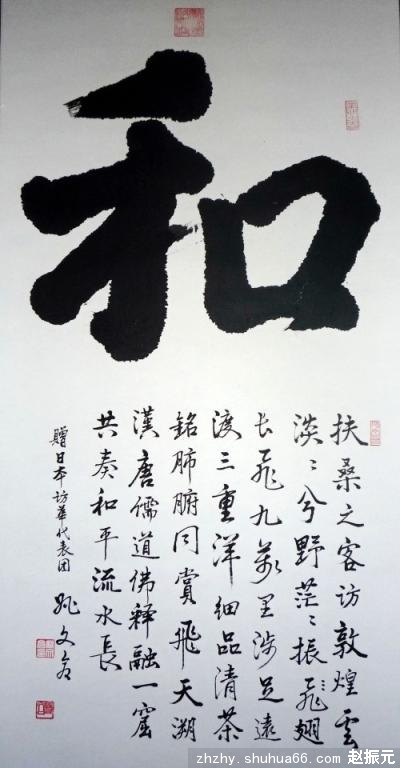 和
扶桑之客访敦煌雲
淡〻兮野茫〻振飛翅
长飛九萬里涉足遠
渡三重洋细品清茶
銘肺腑同賞飛天溯
漢唐儒道佛釋融一窟
共奏和平流水長
贈日本访華代表团
姚文
zhzhy.shuhua66.com 赵振元